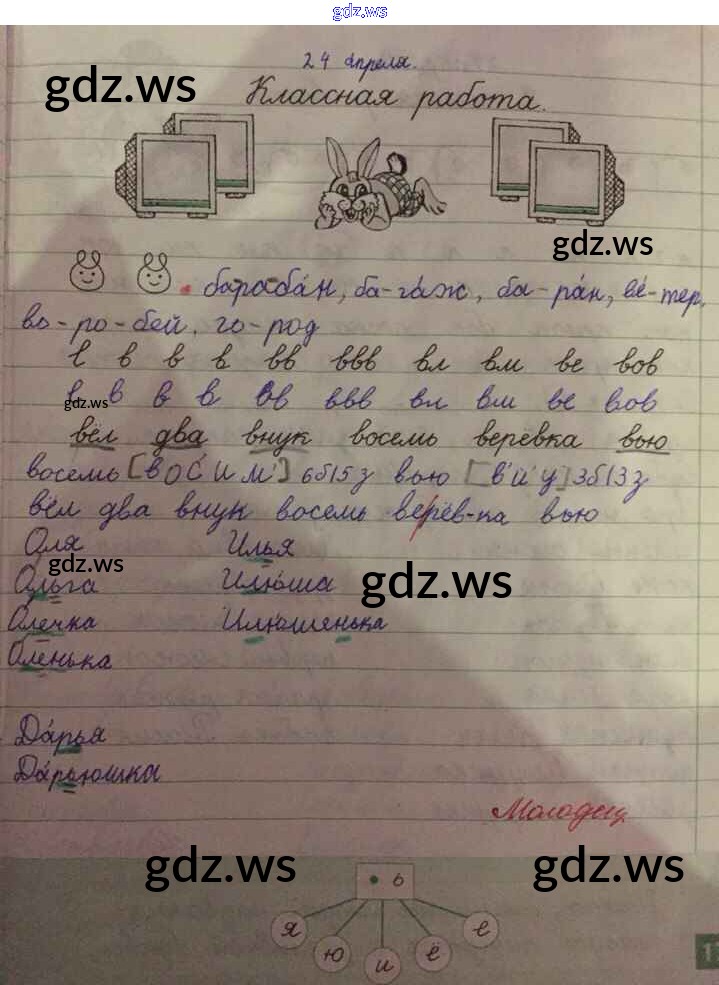 gdz.ws
24 апреля.
gdz.ws
Классная работа.
gdz.ws
барабан, ба-га́ж, ба-ра́н, ве́-тер,
во-ро-бей, го-род
в в в в вв ввв вл вм ве вов
gdz.ws
в в в в вв ввв вл вм ве вов
вёл два внук восемь верёвка вью
восемь [вОС'ИМ'] 6б15з вью [в'й'у] 3б13з
вёл два внук восемь верёв-ка вью
Оля Илья
gdz.ws
gdz.ws
Ольга Илюша
Олечка Илюшенька
Оленька
Да́рья
Да́рьюшка
Молодец
gdz.ws
gdz.ws
я ю и ё е